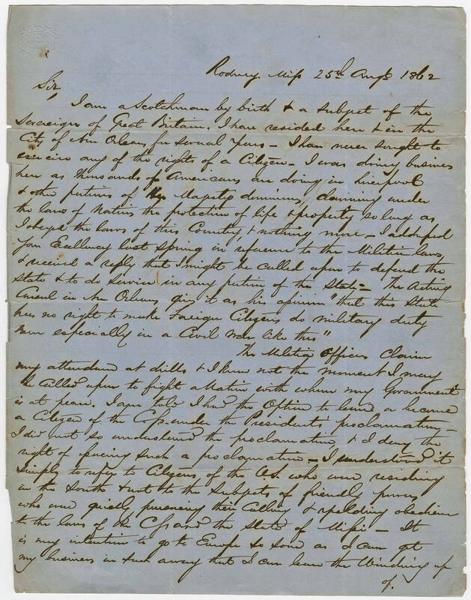 Rodney Miss 25th Augt 1862
Sir,
I am a Scotchman by birth & a subject of the
Sovereign of Great Britain. I have resided here & in the
City of New Orleans for several years – I have never sought to
exercise any of the rights of a Citizen. I was doing business
here as thousands of Americans are doing in Liverpool
& other portions of Her Majestys dominions, claiming under
the law of Nations the protection of life & property so long as
I obeyed the laws of this Country & nothing more – I addressed
you Excellency last Spring in reference to the Militia law
& received a reply that I might be called upon to defend the
State & to do Service in any portion of the State – The Acting
Consul in New Orleans gives it as his opinion "that this State
has no right to make Foreign Citizens do military duty
more especially in a Civil War like this"
The Military Officers claim
my attendance at drills & I know not the moment I may
be called upon to fight a Nation with whom my Government
is at peace. I am told I had the Option to leave or become
a Citizen of the C.S. under the Presidents' proclamation
I did not so understand the proclamation & I deny the
right of issuing such a proclamation – I understood it
simply to refer to Citizens of the U.S. who were residing
in the South & not to the Subjects of friendly powers
who were quietly pursuing their Calling & yielding obedience
to the laws of the C.S. and the State of Missi – It
is my intention to go to Europe so soon as I can get
my business in such a way that I can leave the Winding up
of.